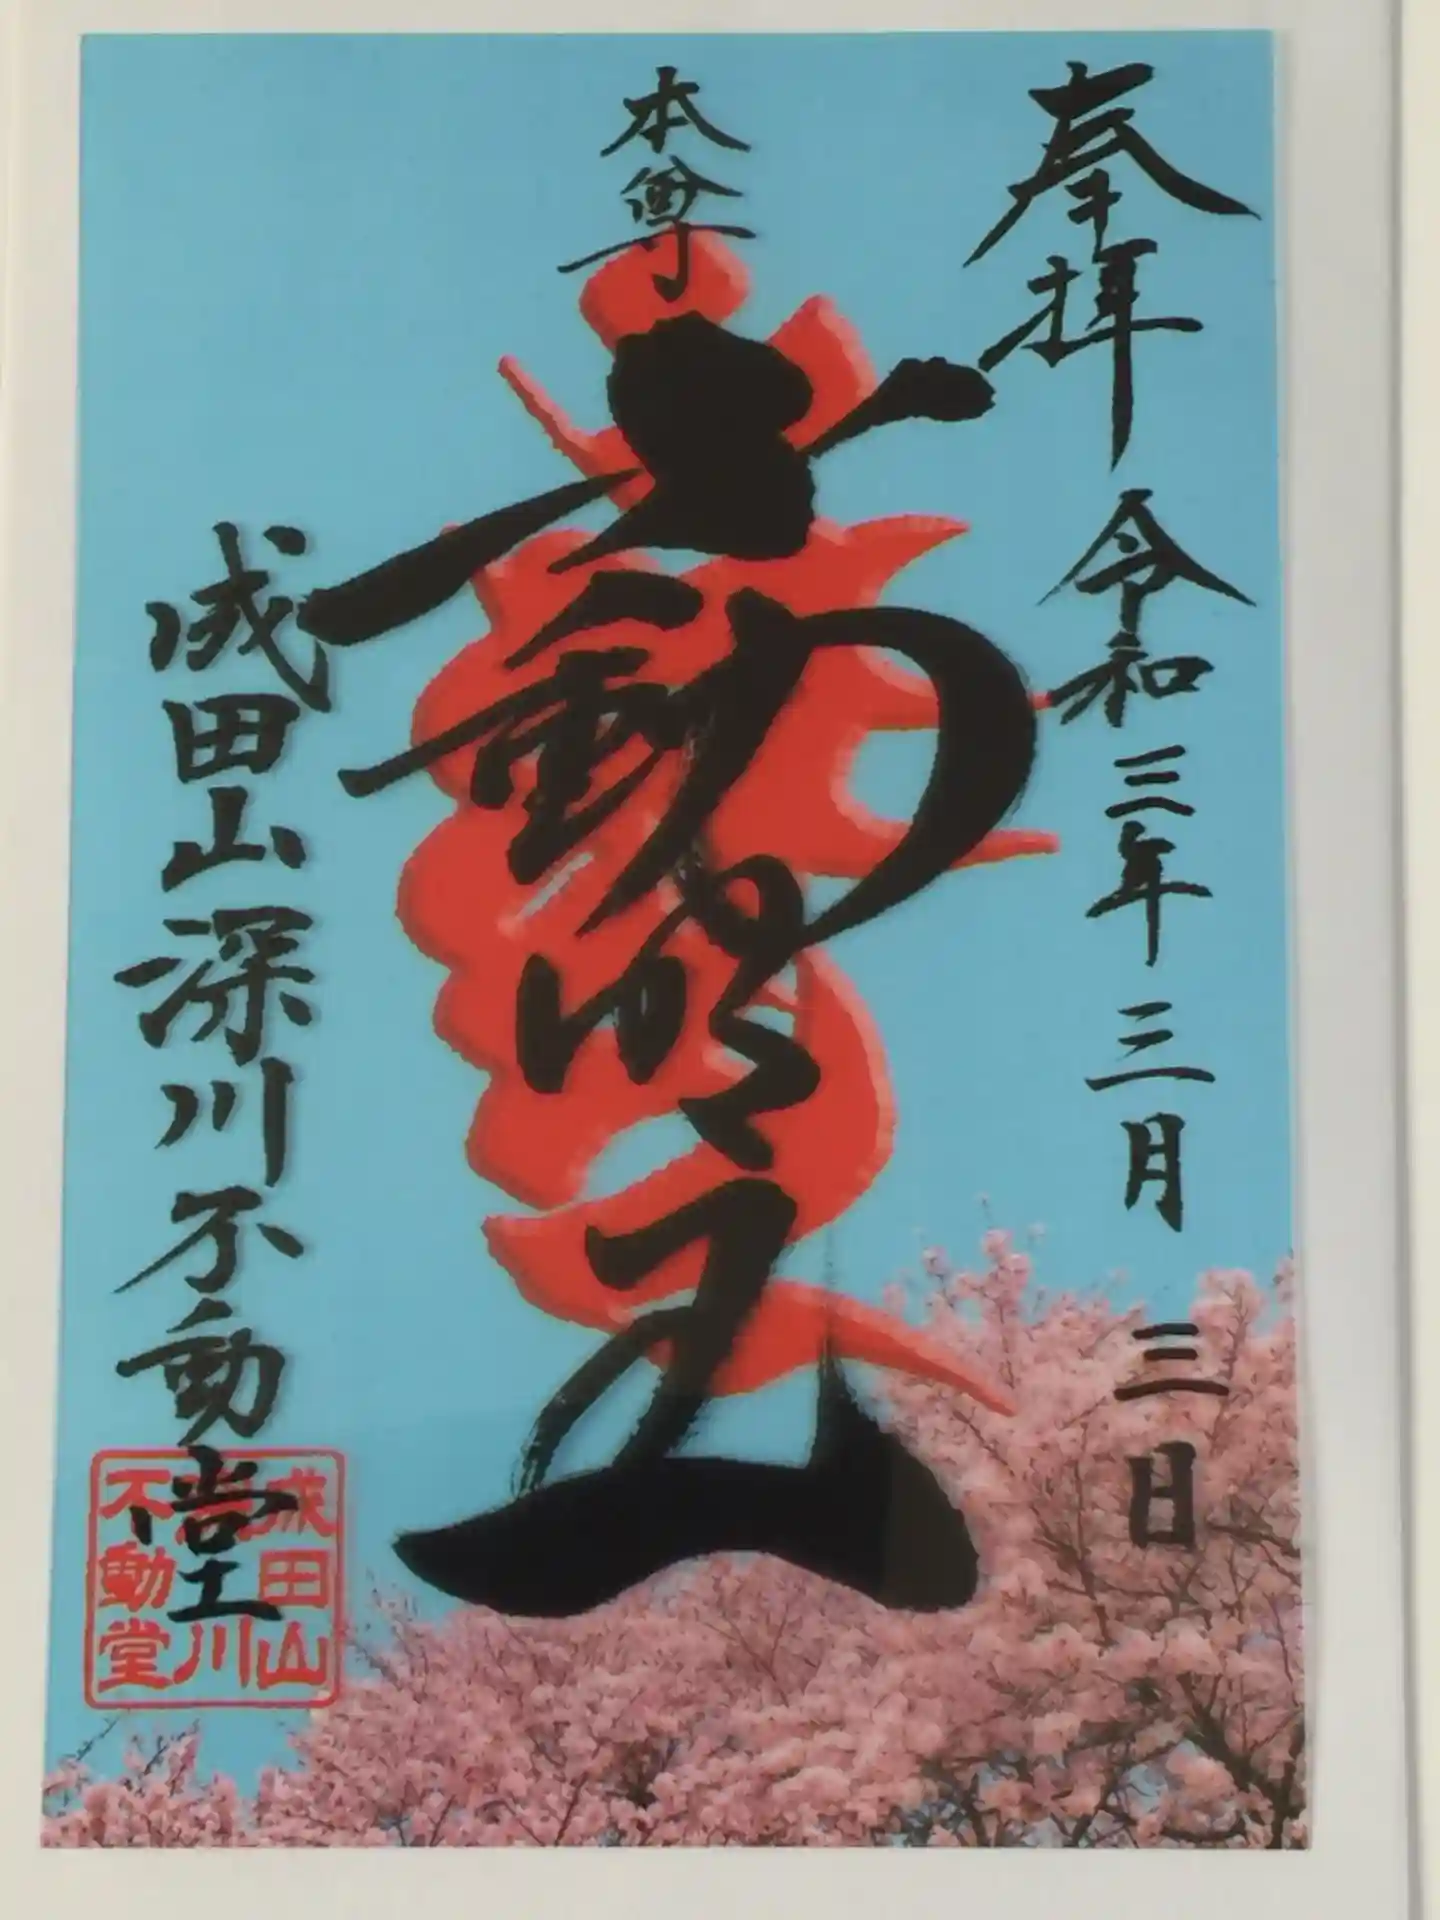 奉拝 令和三年三月三日
本尊
不動明王
成田山深川不動堂
成田山
深川
不動堂